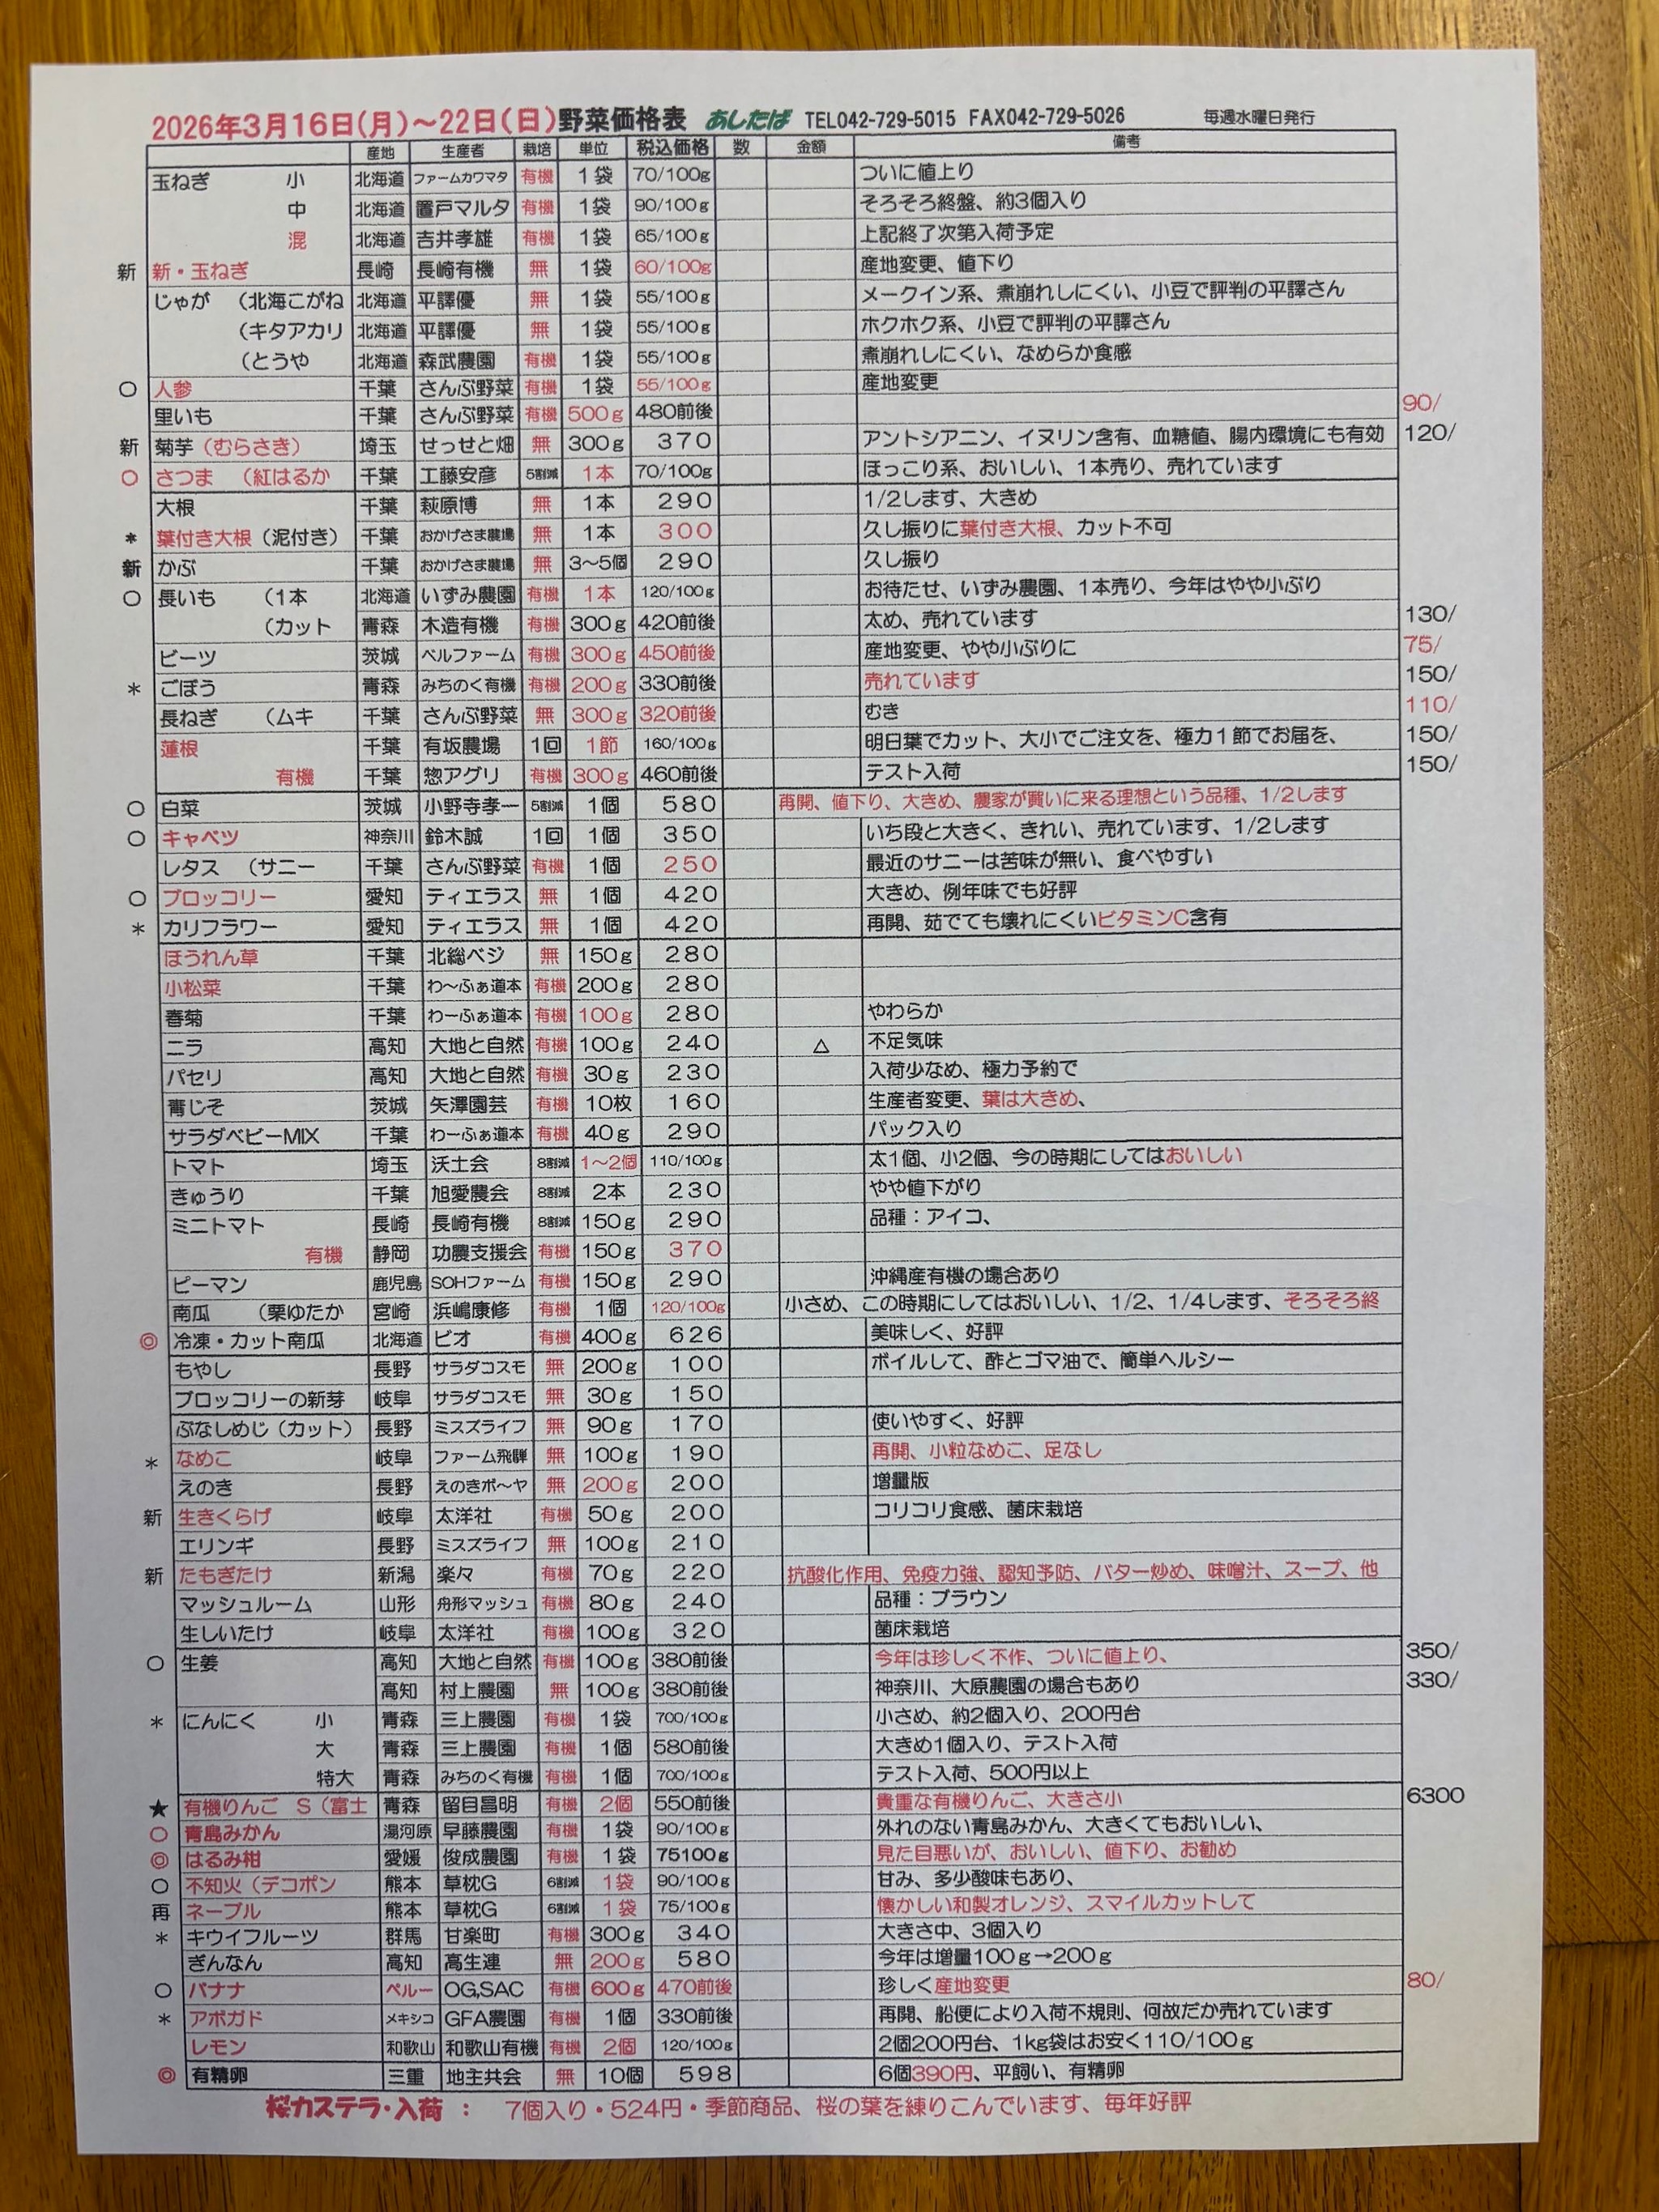 2026年3月16日(月)～22日(日)野菜価格表 あしたば TEL042-729-5015 FAX042-729-5026 毎週水曜日発行
産地 生産者 栽培 単位 税込価格 数 金額 備考
玉ねぎ 小 北海道 ファームカワマタ 有機 1袋 70/100g ついに値上り
中 北海道 置戸マルタ 有機 1袋 90/100g そろそろ終盤、約3個入り
混 北海道 吉井孝雄 有機 1袋 65/100g 上記終了次第入荷予定
新 新・玉ねぎ 長崎 長崎有機 無 1袋 60/100g 産地変更、値下り
じゃが （北海こがね 北海道 平譯優 無 1袋 55/100g メークイン系、煮崩れしにくい、小豆で評判の平譯さん
（キタアカリ 北海道 平譯優 無 1袋 55/100g ホクホク系、小豆で評判の平譯さん
（とうや 北海道 森武農園 有機 1袋 55/100g 煮崩れしにくい、なめらか食感
○ 人参 千葉 さんぶ野菜 有機 1袋 55/100g 産地変更
里いも 千葉 さんぶ野菜 有機 500g 480前後 90/
新 菊芋（むらさき） 埼玉 せっせと畑 無 300g 370 アントシアニン、イヌリン含有、血糖値、腸内環境にも有効 120/
○ さつま （紅はるか 千葉 工藤安彦 5割減 1本 70/100g ほっこり系、おいしい、1本売り、売れています
大根 千葉 萩原博 無 1本 290 1/2します、大きめ
* 葉付き大根（泥付き） 千葉 おかげさま農場 無 1本 300 久し振りに葉付き大根、カット不可
新 かぶ 千葉 おかげさま農場 無 3～5個 290 久し振り
○ 長いも （1本 北海道 いずみ農園 有機 1本 120/100g お待たせ、いずみ農園、1本売り、今年はやや小ぶり
（カット 青森 木造有機 有機 300g 420前後 太め、売れています 130/
ビーツ 茨城 ベルファーム 有機 300g 450前後 産地変更、やや小ぶりに 75/
* ごぼう 青森 みちのく有機 有機 200g 330前後 売れています 150/
長ねぎ （ムキ 千葉 さんぶ野菜 無 300g 320前後 むき 110/
蓮根 千葉 有坂農場 1回 1節 160/100g 明日葉でカット、大小でご注文を、極力1節でお届を、 150/
有機 千葉 惣アグリ 有機 300g 460前後 テスト入荷 150/
○ 白菜 茨城 小野寺孝一 5割減 1個 580 再開、値下り、大きめ、農家が買いに来る理想という品種、1/2します
○ キャベツ 神奈川 鈴木誠 1回 1個 350 いち段と大きく、きれい、売れています、1/2します
レタス （サニー 千葉 さんぶ野菜 有機 1個 250 最近のサニーは苦味が無い、食べやすい
○ ブロッコリー 愛知 ティエラス 無 1個 420 大きめ、例年味でも好評
* カリフラワー 愛知 ティエラス 無 1個 420 再開、茹でても壊れにくいビタミンC含有
ほうれん草 千葉 北総ベジ 無 150g 280
小松菜 千葉 わ～ふぁ道本 有機 200g 280
春菊 千葉 わーふぁ道本 有機 100g 280 やわらか
ニラ 高知 大地と自然 有機 100g 240 △ 不足気味
パセリ 高知 大地と自然 有機 30g 230 入荷少なめ、極力予約で
青じそ 茨城 矢澤園芸 有機 10枚 160 生産者変更、葉は大きめ、
サラダベビーMIX 千葉 わーふぁ道本 有機 40g 290 パック入り
トマト 埼玉 沃土会 8割減 1～2個 110/100g 太1個、小2個、今の時期にしてはおいしい
きゅうり 千葉 旭愛農会 8割減 2本 230 やや値下がり
ミニトマト 長崎 長崎有機 8割減 150g 290 品種：アイコ、
有機 静岡 功農支援会 有機 150g 370
ピーマン 鹿児島 SOHファーム 有機 150g 290 沖縄産有機の場合あり
南瓜 （栗ゆたか 宮崎 浜嶋康修 有機 1個 120/100g 小さめ、この時期にしてはおいしい、1/2、1/4します、そろそろ終
◎ 冷凍・カット南瓜 北海道 ビオ 有機 400g 626 美味しく、好評
もやし 長野 サラダコスモ 無 200g 100 ボイルして、酢とゴマ油で、簡単ヘルシー
ブロッコリーの新芽 岐阜 サラダコスモ 無 30g 150
ぶなしめじ（カット） 長野 ミスズライフ 無 90g 170 使いやすく、好評
* なめこ 岐阜 ファーム飛騨 無 100g 190 再開、小粒なめこ、足なし
えのき 長野 えのきボ～ヤ 無 200g 200 増量版
新 生きくらげ 岐阜 太洋社 有機 50g 200 コリコリ食感、菌床栽培
エリンギ 長野 ミスズライフ 無 100g 210
新 たもぎたけ 新潟 楽々 有機 70g 220 抗酸化作用、免疫力強、認知予防、バター炒め、味噌汁、スープ、他
マッシュルーム 山形 舟形マッシュ 有機 80g 240 品種：ブラウン
生しいたけ 岐阜 太洋社 有機 100g 320 菌床栽培
○ 生姜 高知 大地と自然 有機 100g 380前後 今年は珍しく不作、ついに値上り、 350/
高知 村上農園 無 100g 380前後 神奈川、大原農園の場合もあり 330/
* にんにく 小 青森 三上農園 有機 1袋 700/100g 小さめ、約2個入り、200円台
大 青森 三上農園 有機 1個 580前後 大きめ1個入り、テスト入荷
特大 青森 みちのく有機 有機 1個 700/100g テスト入荷、500円以上
★ 有機りんご S（富士 青森 留目昌明 有機 2個 550前後 貴重な有機りんご、大きさ小 6300
○ 青島みかん 湯河原 早藤農園 有機 1袋 90/100g 外れのない青島みかん、大きくてもおいしい、
◎ はるみ柑 愛媛 俊成農園 有機 1袋 75100g 見た目悪いが、おいしい、値下り、お勧め
○ 不知火（デコポン 熊本 草枕G 6割減 1袋 90/100g 甘み、多少酸味もあり、
再 ネーブル 熊本 草枕G 6割減 1袋 75/100g 懐かしい和製オレンジ、スマイルカットして
* キウイフルーツ 群馬 甘楽町 有機 300g 340 大きさ中、3個入り
ぎんなん 高知 高生連 無 200g 580 今年は増量100g→200g
○ バナナ ペルー OG,SAC 有機 600g 470前後 珍しく産地変更 80/
* アボガド メキシコ GFA農園 有機 1個 330前後 再開、船便により入荷不規則、何故だか売れています
レモン 和歌山 和歌山有機 有機 2個 120/100g 2個200円台、1kg袋はお安く110/100g
◎ 有精卵 三重 地主共会 無 10個 598 6個390円、平飼い、有精卵
桜カステラ・入荷 ： 7個入り・524円・季節商品、桜の葉を練りこんでいます、毎年好評